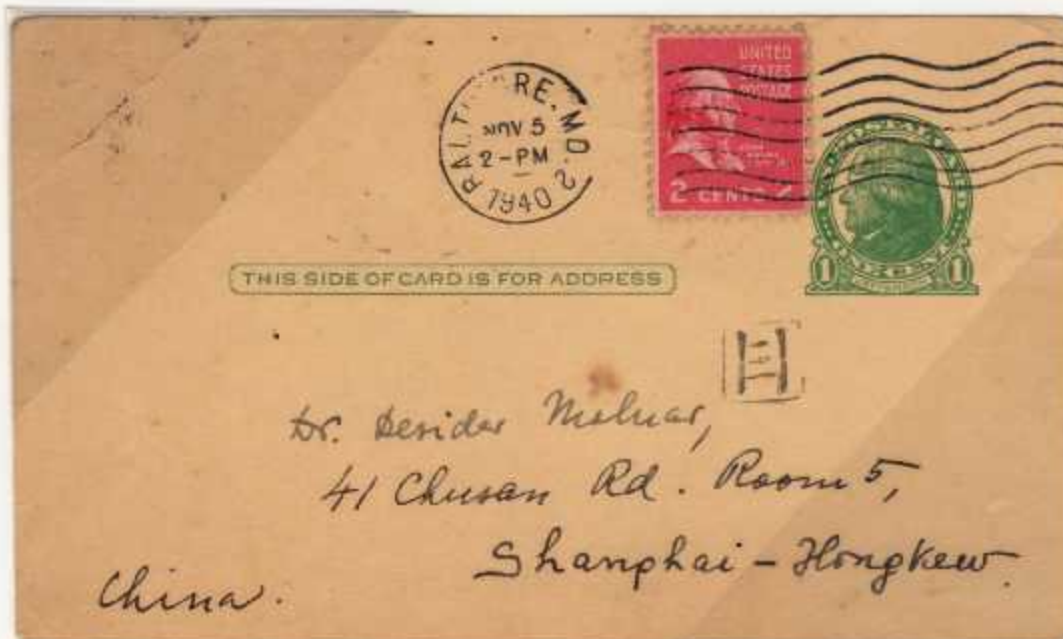 BALT RE, MD. 2
NOV 5
2-PM
1940
UNITED
STATES
POSTAGE
2 CENTS 2
1 1
THIS SIDE OF CARD IS FOR ADDRESS
Dr. Desider Molnar,
41 Chusan Rd. Room 5,
Shanghai - Hongkew.
China.